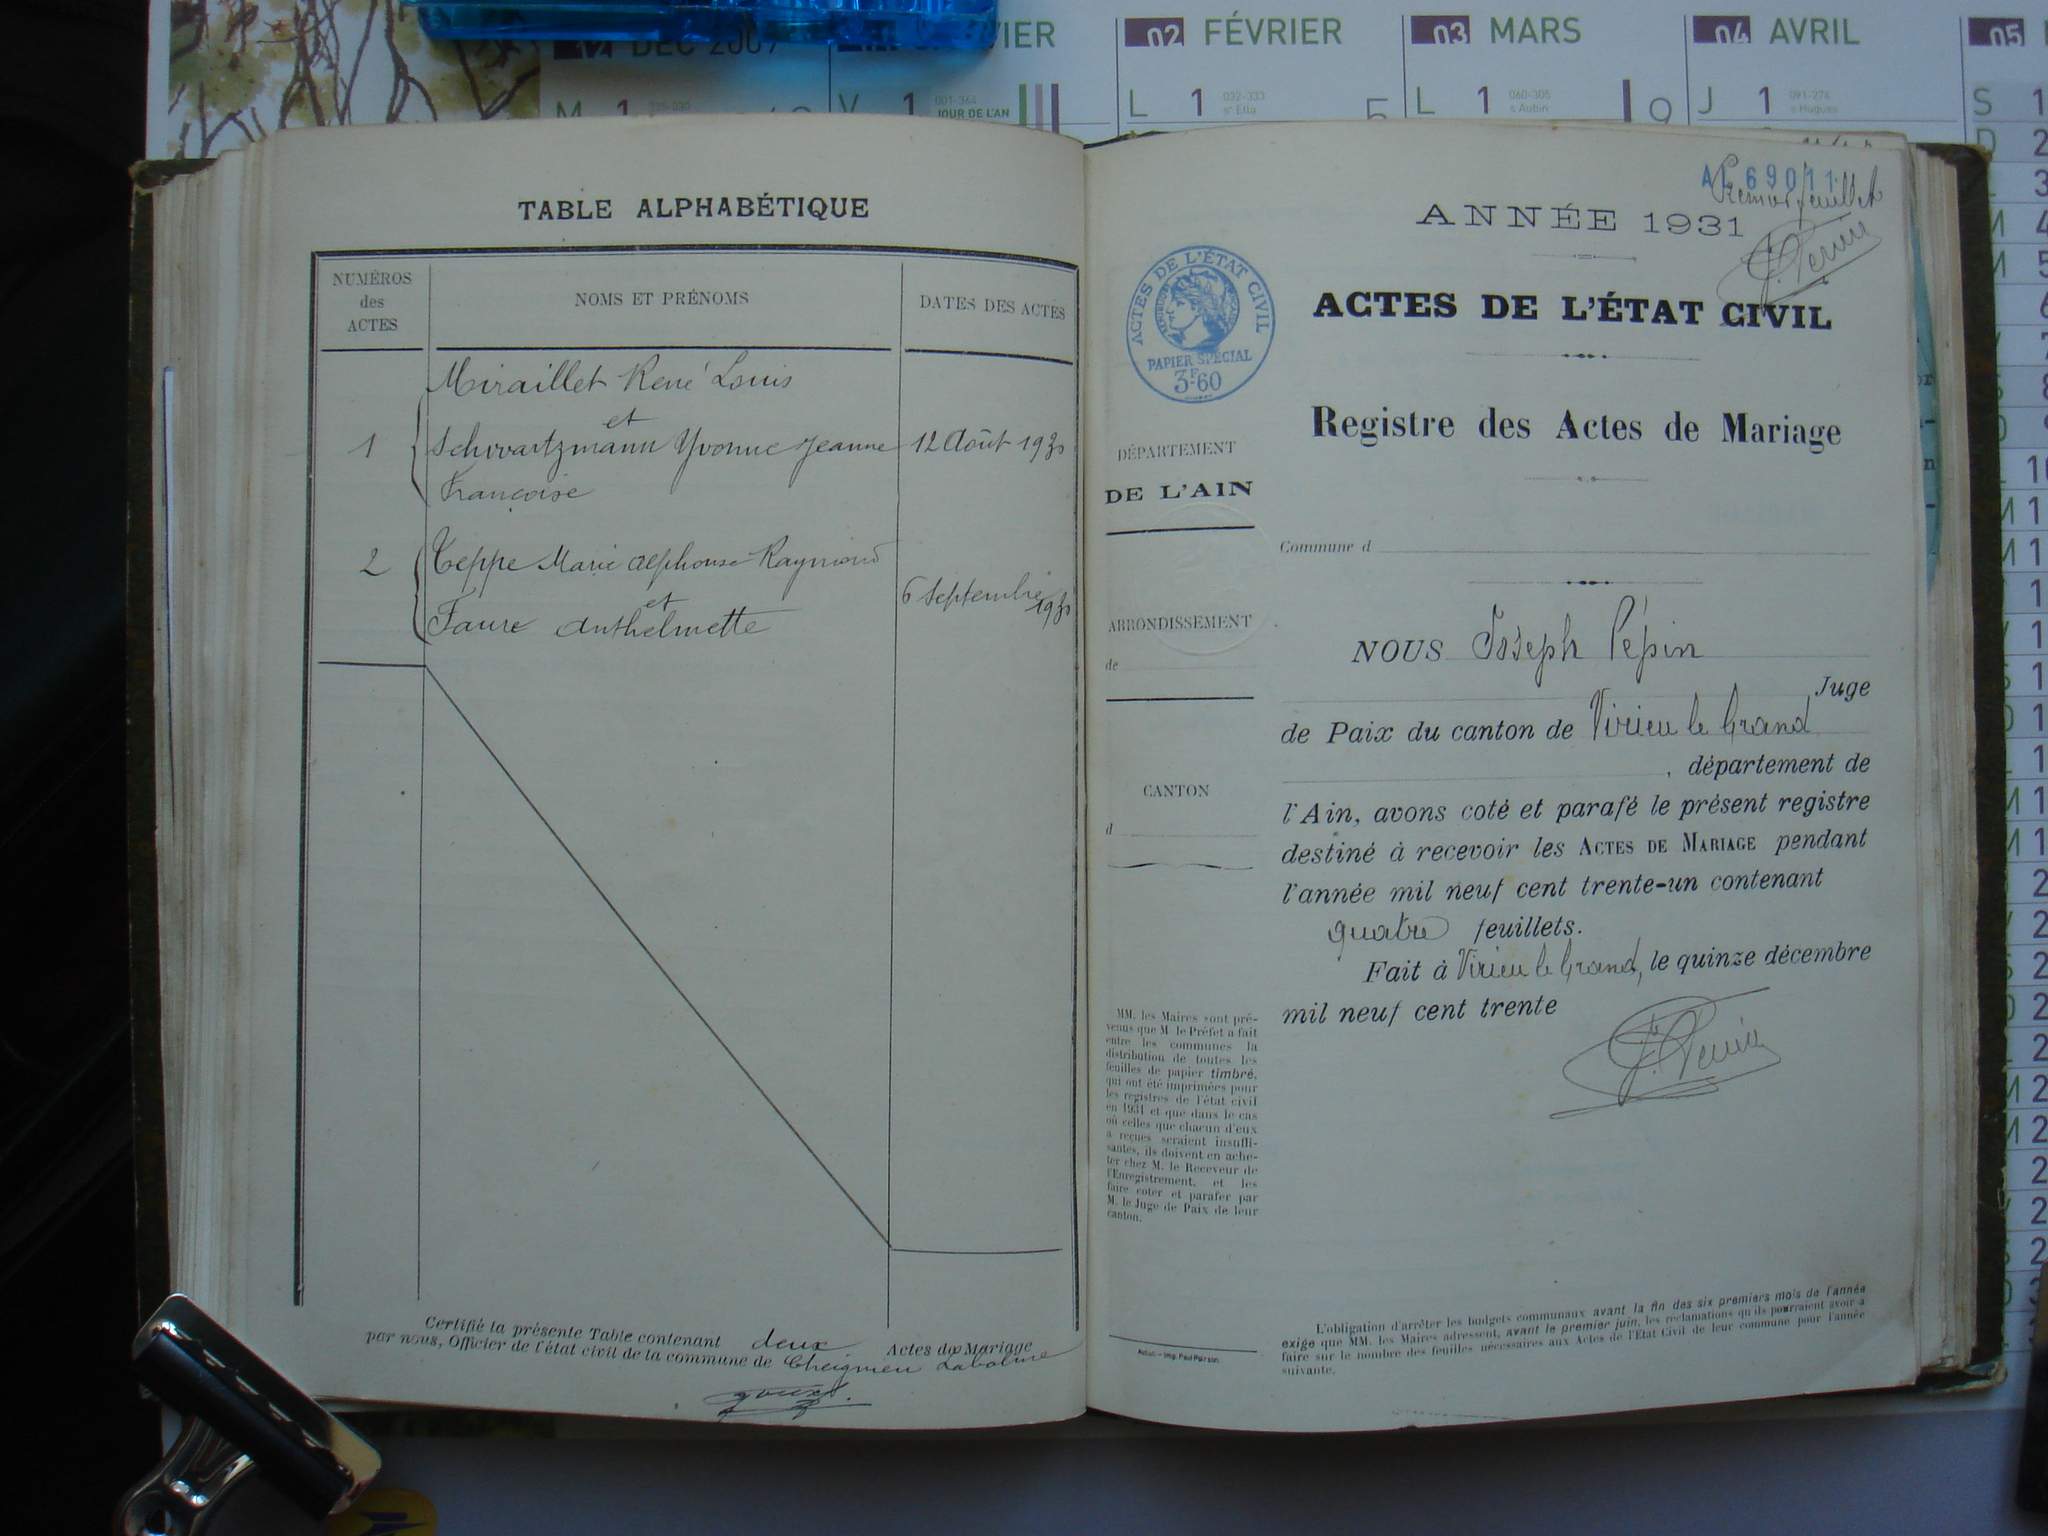 DEC 2009
02 FÉVRIER
03 MARS
04 AVRIL
05
M 1
V 1 001-364 JOUR DE L'AN
L 1 032-333 sᵉ Ella 5
L 1 060-305 s Aubin 9
J 1 091-274 s Hugues
S 1
TABLE ALPHABÉTIQUE
NUMÉROS des ACTES
NOMS ET PRÉNOMS
DATES DES ACTES
Miraillet René Louis
et
1 Schwartzmann Yvonne Jeanne 12 Août 1930
Françoise
2 Teppe Marie Alphonse Raymond
et 6 Septembre 1930
Faure Anthelmette
Certifié la présente Table contenant deux Actes de Mariage
par nous, Officier de l'état civil de la commune de Cheignieu Labalme
AL 69011
Premier feuillet
ANNÉE 1931
ACTES DE L'ÉTAT CIVIL
PAPIER SPÉCIAL
3F.60
ACTES DE L'ÉTAT CIVIL
Registre des Actes de Mariage
DÉPARTEMENT
DE L'AIN
Commune d
ARRONDISSEMENT
de
CANTON
d
NOUS Joseph Pépin
Juge
de Paix du canton de Virieu le Grand
, département de
l'Ain, avons coté et parafé le présent registre
destiné à recevoir les ACTES DE MARIAGE pendant
l'année mil neuf cent trente-un contenant
quatre feuillets.
Fait à Virieu le Grand, le quinze décembre
mil neuf cent trente
MM. les Maires sont pré-
venus que M. le Préfet a fait
entre les communes la
distribution de toutes les
feuilles de papier timbré,
qui ont été imprimées pour
les registres de l'état civil
en 1931 et que dans le cas
où celles que chacun d'eux
a reçues seraient insuffi-
santes, ils doivent en ache-
ter chez M. le Receveur de
l'Enregistrement, et les
faire coter et parafer par
M. le Juge de Paix de leur
canton.
L'obligation d'arrêter les budgets communaux avant la fin des six premiers mois de l'année
exige que MM. les Maires adressent, avant le premier juin, les réclamations qu'ils pourraient avoir à
faire sur le nombre des feuilles nécessaires aux Actes de l'État Civil de leur commune pour l'année
suivante.